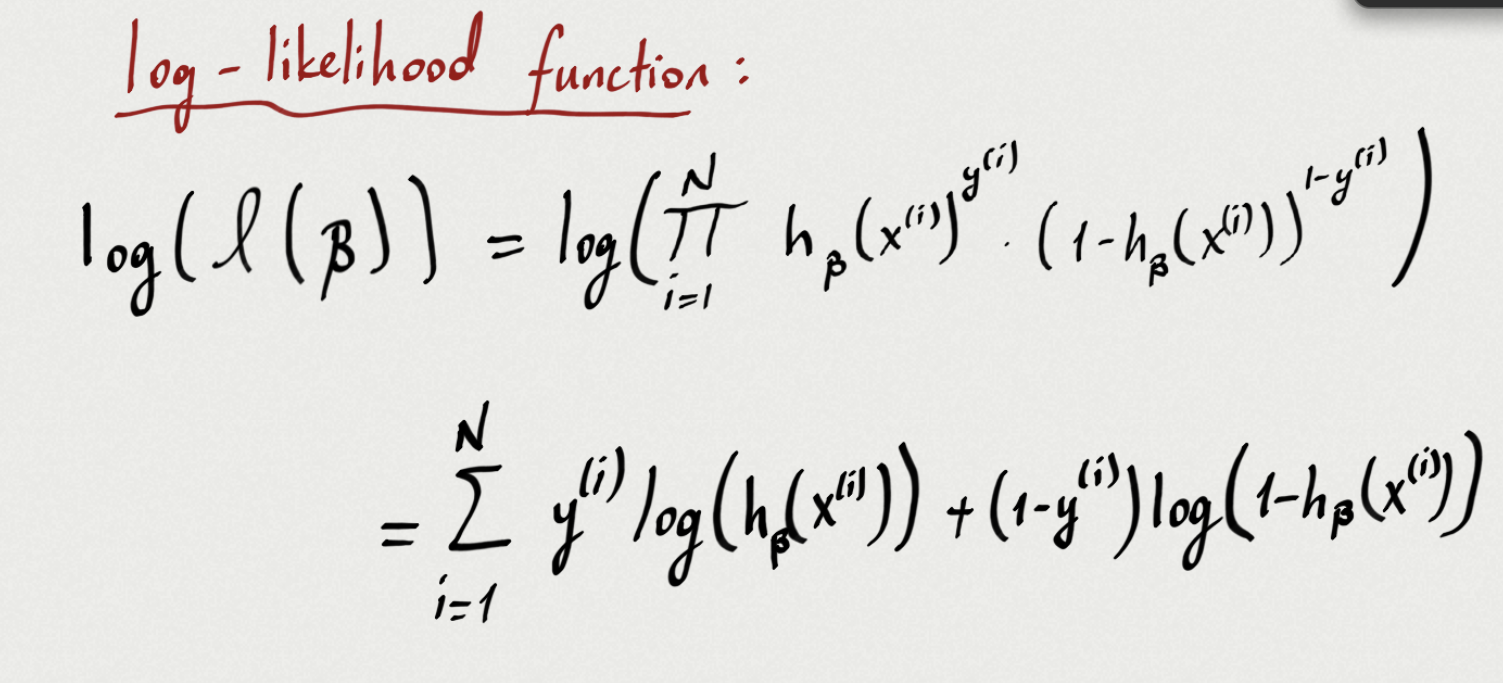 log-likelihood function:
log(ℓ(β)) = log(∏_{i=1}^{N} h_β(x^{(i)})^{y^{(i)}} · (1-h_β(x^{(i)}))^{1-y^{(i)}})
= ∑_{i=1}^{N} y^{(i)} log(h_β(x^{(i)})) + (1-y^{(i)}) log(1-h_β(x^{(i)}))